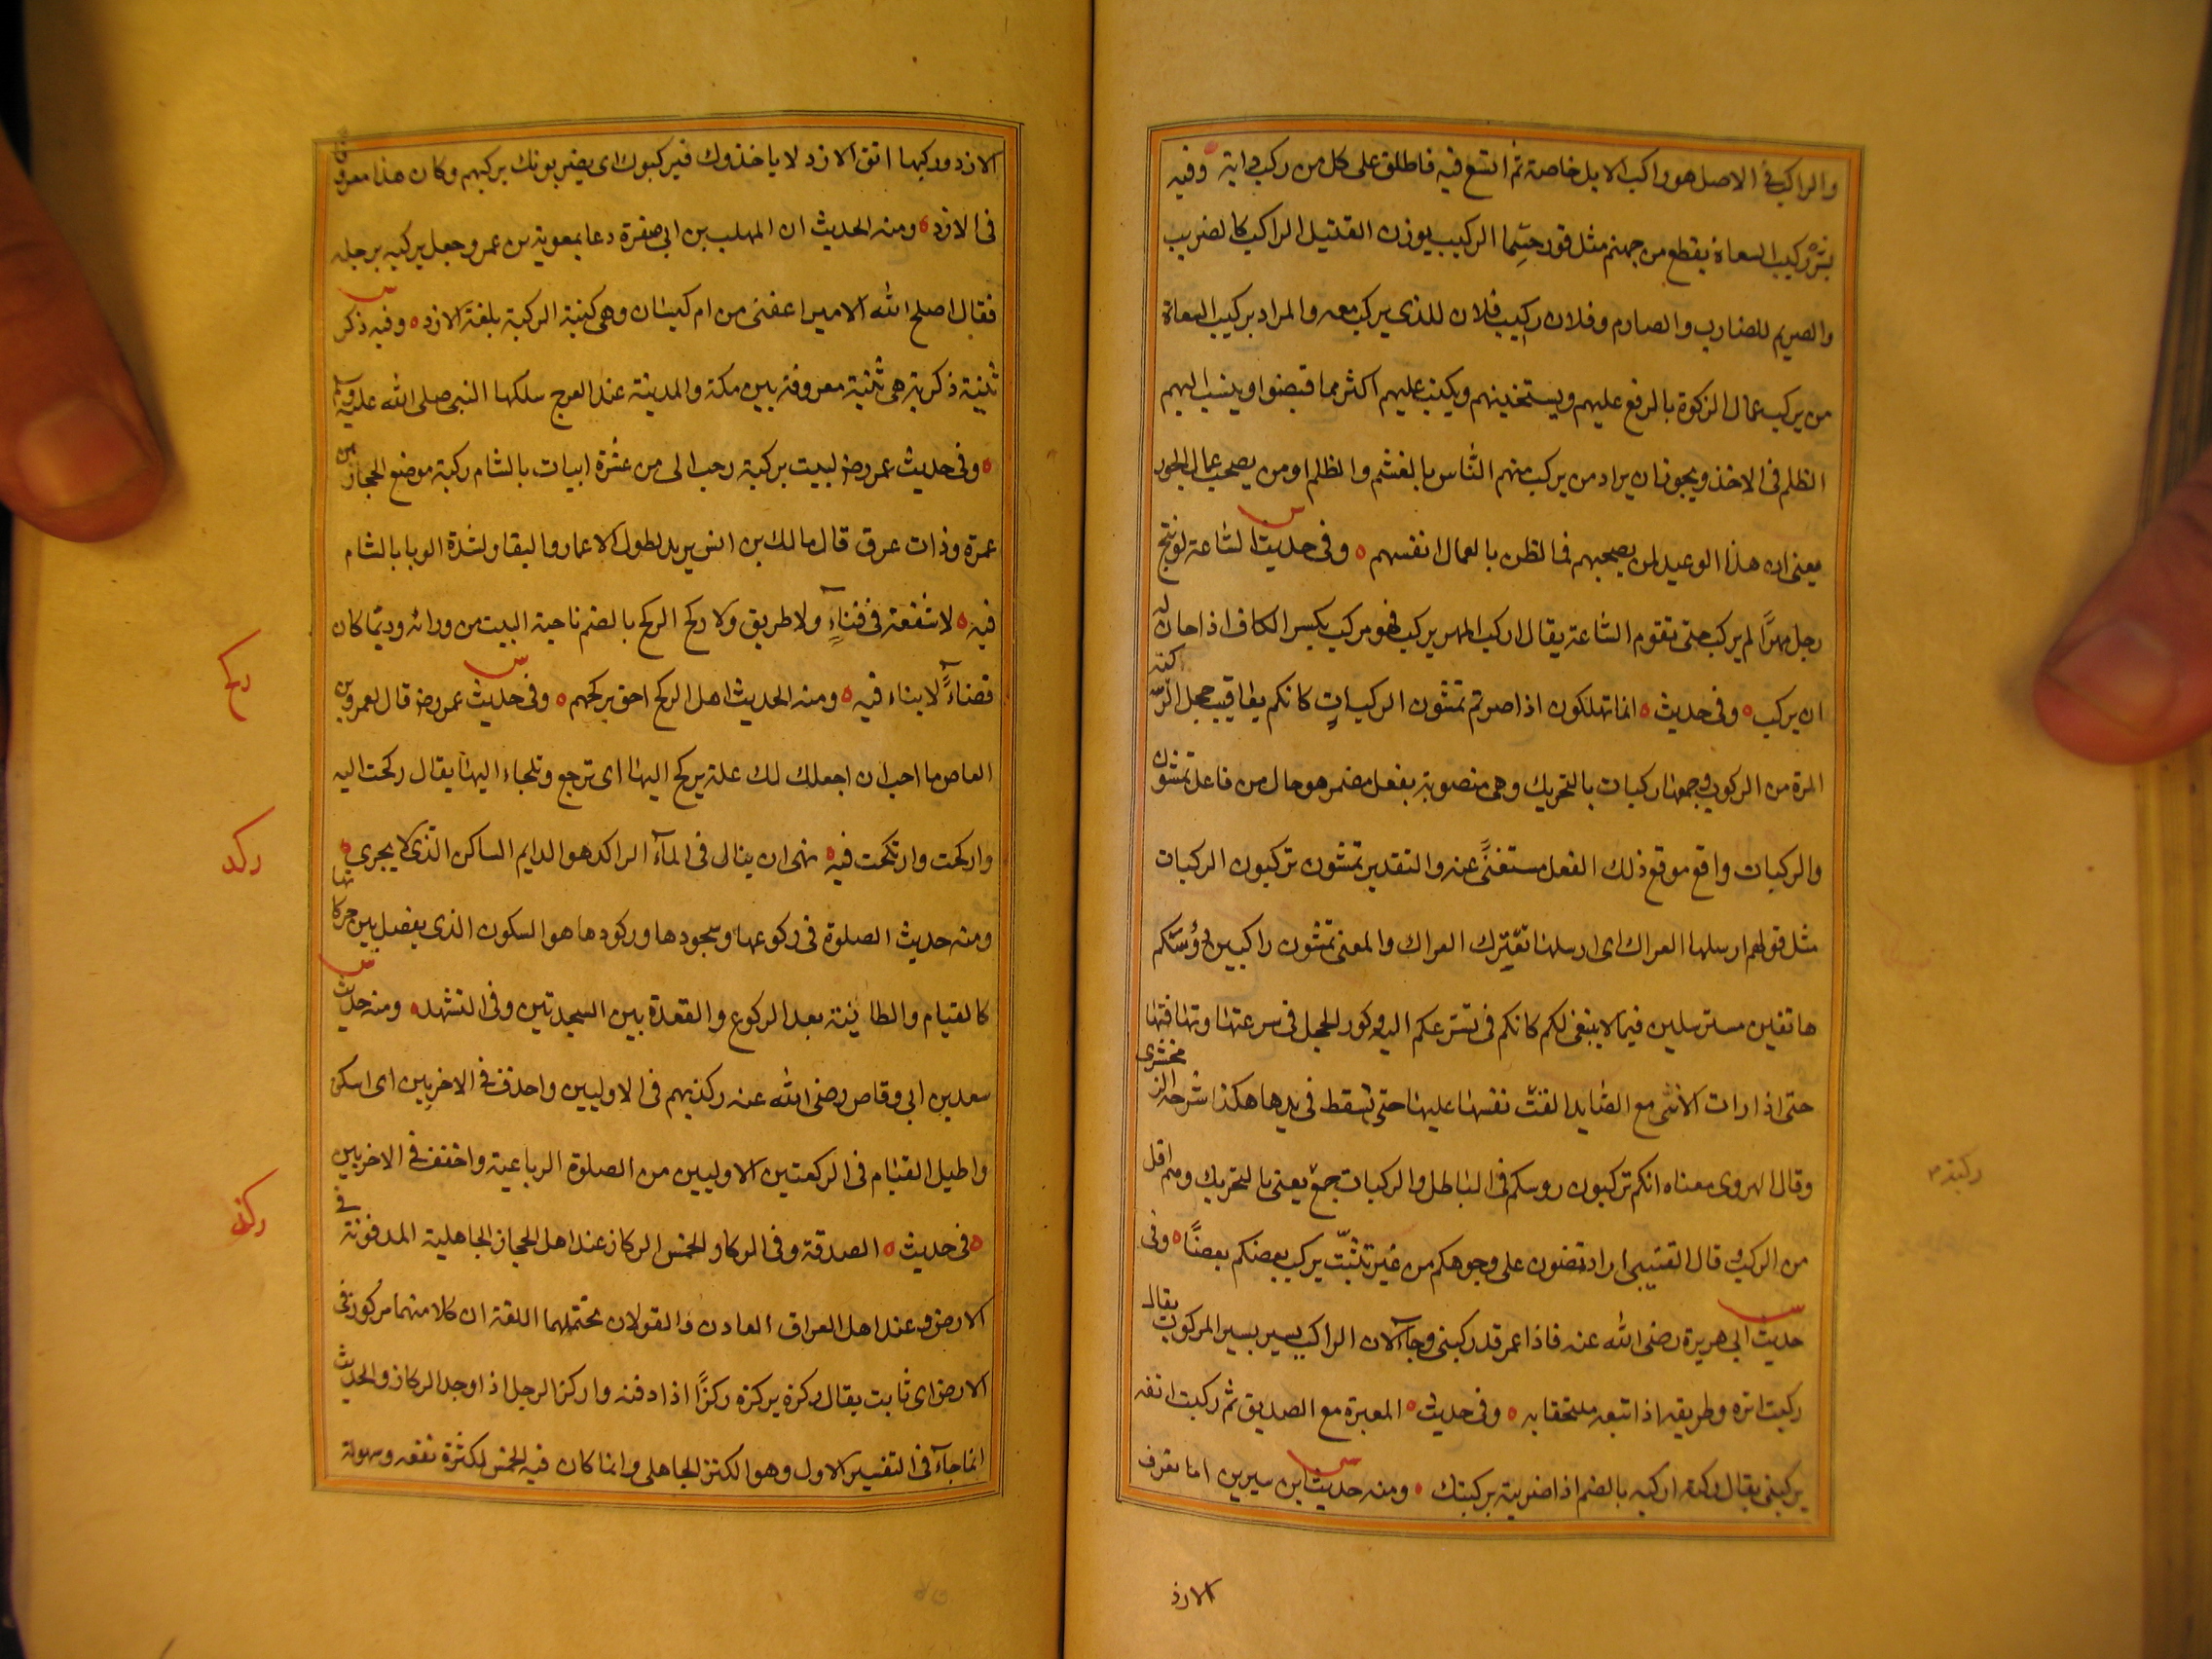 والراكب في الاصل هو راكب الابل خاصة ثم اتسع فيه فاطلق على كل من ركب دابة وفيه
بشر ركيب السعاة بقطع من جهنم مثل قور حسما الركيب بوزن القتيل الراكب كالضريب
والصريم للضارب والصارم وفلان ركيب فلان للذي يركب معه والمراد بركيب السعاة
من يركب عمال الزكوة بالرفع عليهم ويستخينهم ويكتب عليهم اكثر مما قبضوا وينسب اليهم
الظلم في الاخذ ويجوز ان يراد من يركب منهم الناس بالغشم والظلم او من يصحب عمال الجور
يعني ان هذا الوعيد لمن يصحبهم فما الظن بالعمال انفسهم ه وفي حديث الساعة لو نتج
رجل مهرًا لم يركب حتى تقوم الساعة يقال اركب المهر يركب فهو مركب بكسر الكاف اذا حان له
ان يركب ه وفي حديث ه انما تهلكون اذا صرتم تمشون الركبات كانكم يعاقيب حجل الركبة
المرة من الركوب وجمعها ركبات بالتحريك وهي منصوبة بفعل مضمر هو حال من فاعل تمشون
والركبات واقع موقع ذلك الفعل مستغنًى عنه والتقدير تمشون تركبون الركبات
مثل قولهم ارسلها العراك اى ارسلها تعترك العراك والمعنى تمشون راكبين رؤسكم
هائمين مسترسلين فيما لا ينبغي لكم كانكم في تسرعكم اليه ذكور الحجل في سرعتها وتهافتها
حتى اذا رات الانثى مع الصايد القت نفسها عليها حتى تسقط في يدها هكذا شرحه الزمخشرى
وقال الهروى معناه انكم تركبون روسكم في الباطل والركبات جمع يعني بالتحريك وهم اقل
من الركب قال القتيبى اراد تمضون على وجوهكم من غير تثبت يركب بعضكم بعضًا ه وفي
حديث ابي هريرة رضى الله عنه فاذا عمر قد ركبني وجاء لان الراكب يسير بسير المركوب يقال
ركبت اثره وطريقه اذا تبعه ملتحقا به ه وفي حديث ه المغيرة مع الصديق ثم ركبت انفه
بركبتي يقال ركبته اركبه بالضم اذا ضربته بركبتك ه ومنه حديث ابن سيرين اما تعرف
الازد
الازد وركبها اتق الازد لا ياخذوك فيركبوك اى يضربونك بركبهم وكان هذا معروفا
في الازد ه ومنه الحديث ان المهلب بن ابي صفرة دعا بمعوية بن عمرو جعل يركبه برجله
فقال اصلح الله الامير اعفني من ام كيسان وهي كنية الركبة بلغة الازد ه وفيه ذكر
ثنية ذكربة هي ثنية معروفة بين مكة والمدينة عند العرج سلكها النبي صلى الله عليه وسلم
ه وفي حديث عمر رضه لبيت بركبة احب الى من عشرة ابيات بالشام ركبة موضع الحجاز بين
غمرة وذات عرق قال مالك بن انس يريد لطول الاعمار والبقا ولشدة الوبا بالشام
فيه ه لا شفعة في فناءٍ ولا طريق ولا ركح الركح بالضم ناحية البيت من ورائه وربما كان
فضاءً لا بناء فيه ه ومنه الحديث اهل الركح احق بركحهم ه وفي حديث عمر رضه قال لعمرو بن
العاص ما احب ان اجعلك لك علة يركح اليها اى ترجع وتلجاء اليها يقال ركحت اليه
واركحت وارتكحت فيه ه نهى ان يبال في الماء الراكد هو الدايم الساكن الذى لا يجرى ه
ومنه حديث الصلوة في ركوعها وسجودها وركودها هو السكون الذي يفصل بين حركاتها
كالقيام والطمانينة بعد الركوع والقعدة بين السجدتين وفي التشهد ه ومنه حديث
سعد بن ابي وقاص رضى الله عنه ركد بهم في الاوليين واحذف في الاخريين اى اسكن
واطيل القيام في الركعتين الاوليين من الصلوة الرباعية واخفف في الاخريين
ه في حديث ه الصدقة وفي الركاز الخمس الركاز عند اهل الحجاز الجاهلية المدفونة في
الارض وعند اهل العراق المعادن والقولان تحتملهما اللغة ان كلا منهما مركوز في
الارض اى ثابت يقال ركزه يركزه ركزًا اذا دفنه واركز الرجل اذا وجد الركاز والحديث
انما جاء في التفسير الاول وهو الكنز الجاهلى وانما كان فيه الخمس لكثرة نفعه وسهولة
ركح
ركد
ركز